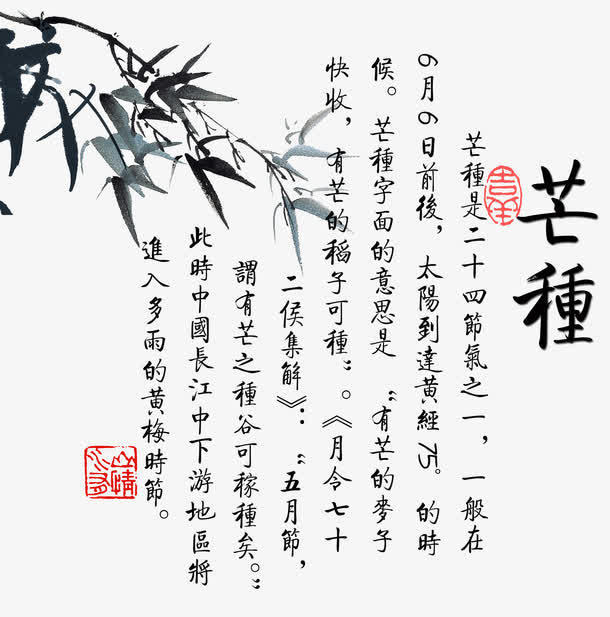 芒種
芒種是二十四節氣之一，一般在
6月6日前後，太陽到達黃經75°的時
候。芒種字面的意思是“有芒的麥子
快收，有芒的稻子可種”。《月令七十
二侯集解》：“五月節，
謂有芒之種谷可稼種矣。”
此時中國長江中下游地區將
進入多雨的黃梅時節。